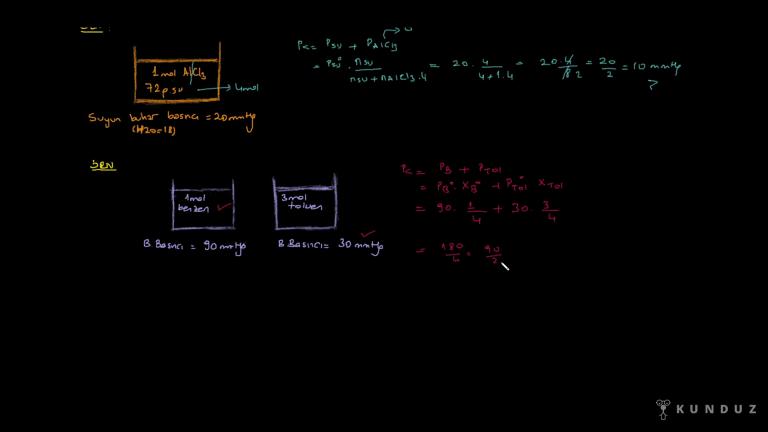 1 mol AlCl3
72 gr su → 4 mol
Suyun buhar basıncı = 20 mmHg
(H2O = 18)
Pç = Psu + PAlCl3 → 0
= P°su . nsu / nsu + nAlCl3.4 = 20 . 4 / 4+1.4 = 20.4 / 8 2 = 20 / 2 = 10 mmHg
ÖRN
1 mol
benzen
3 mol
toluen
B Basıncı = 90 mmHg
B Basıncı = 30 mmHg
Pç = PB + PTol
= PB° . XB + PTol° XTol
= 90 . 1/4 + 30 . 3/4
= 180/4 = 90/2
KUNDUZ